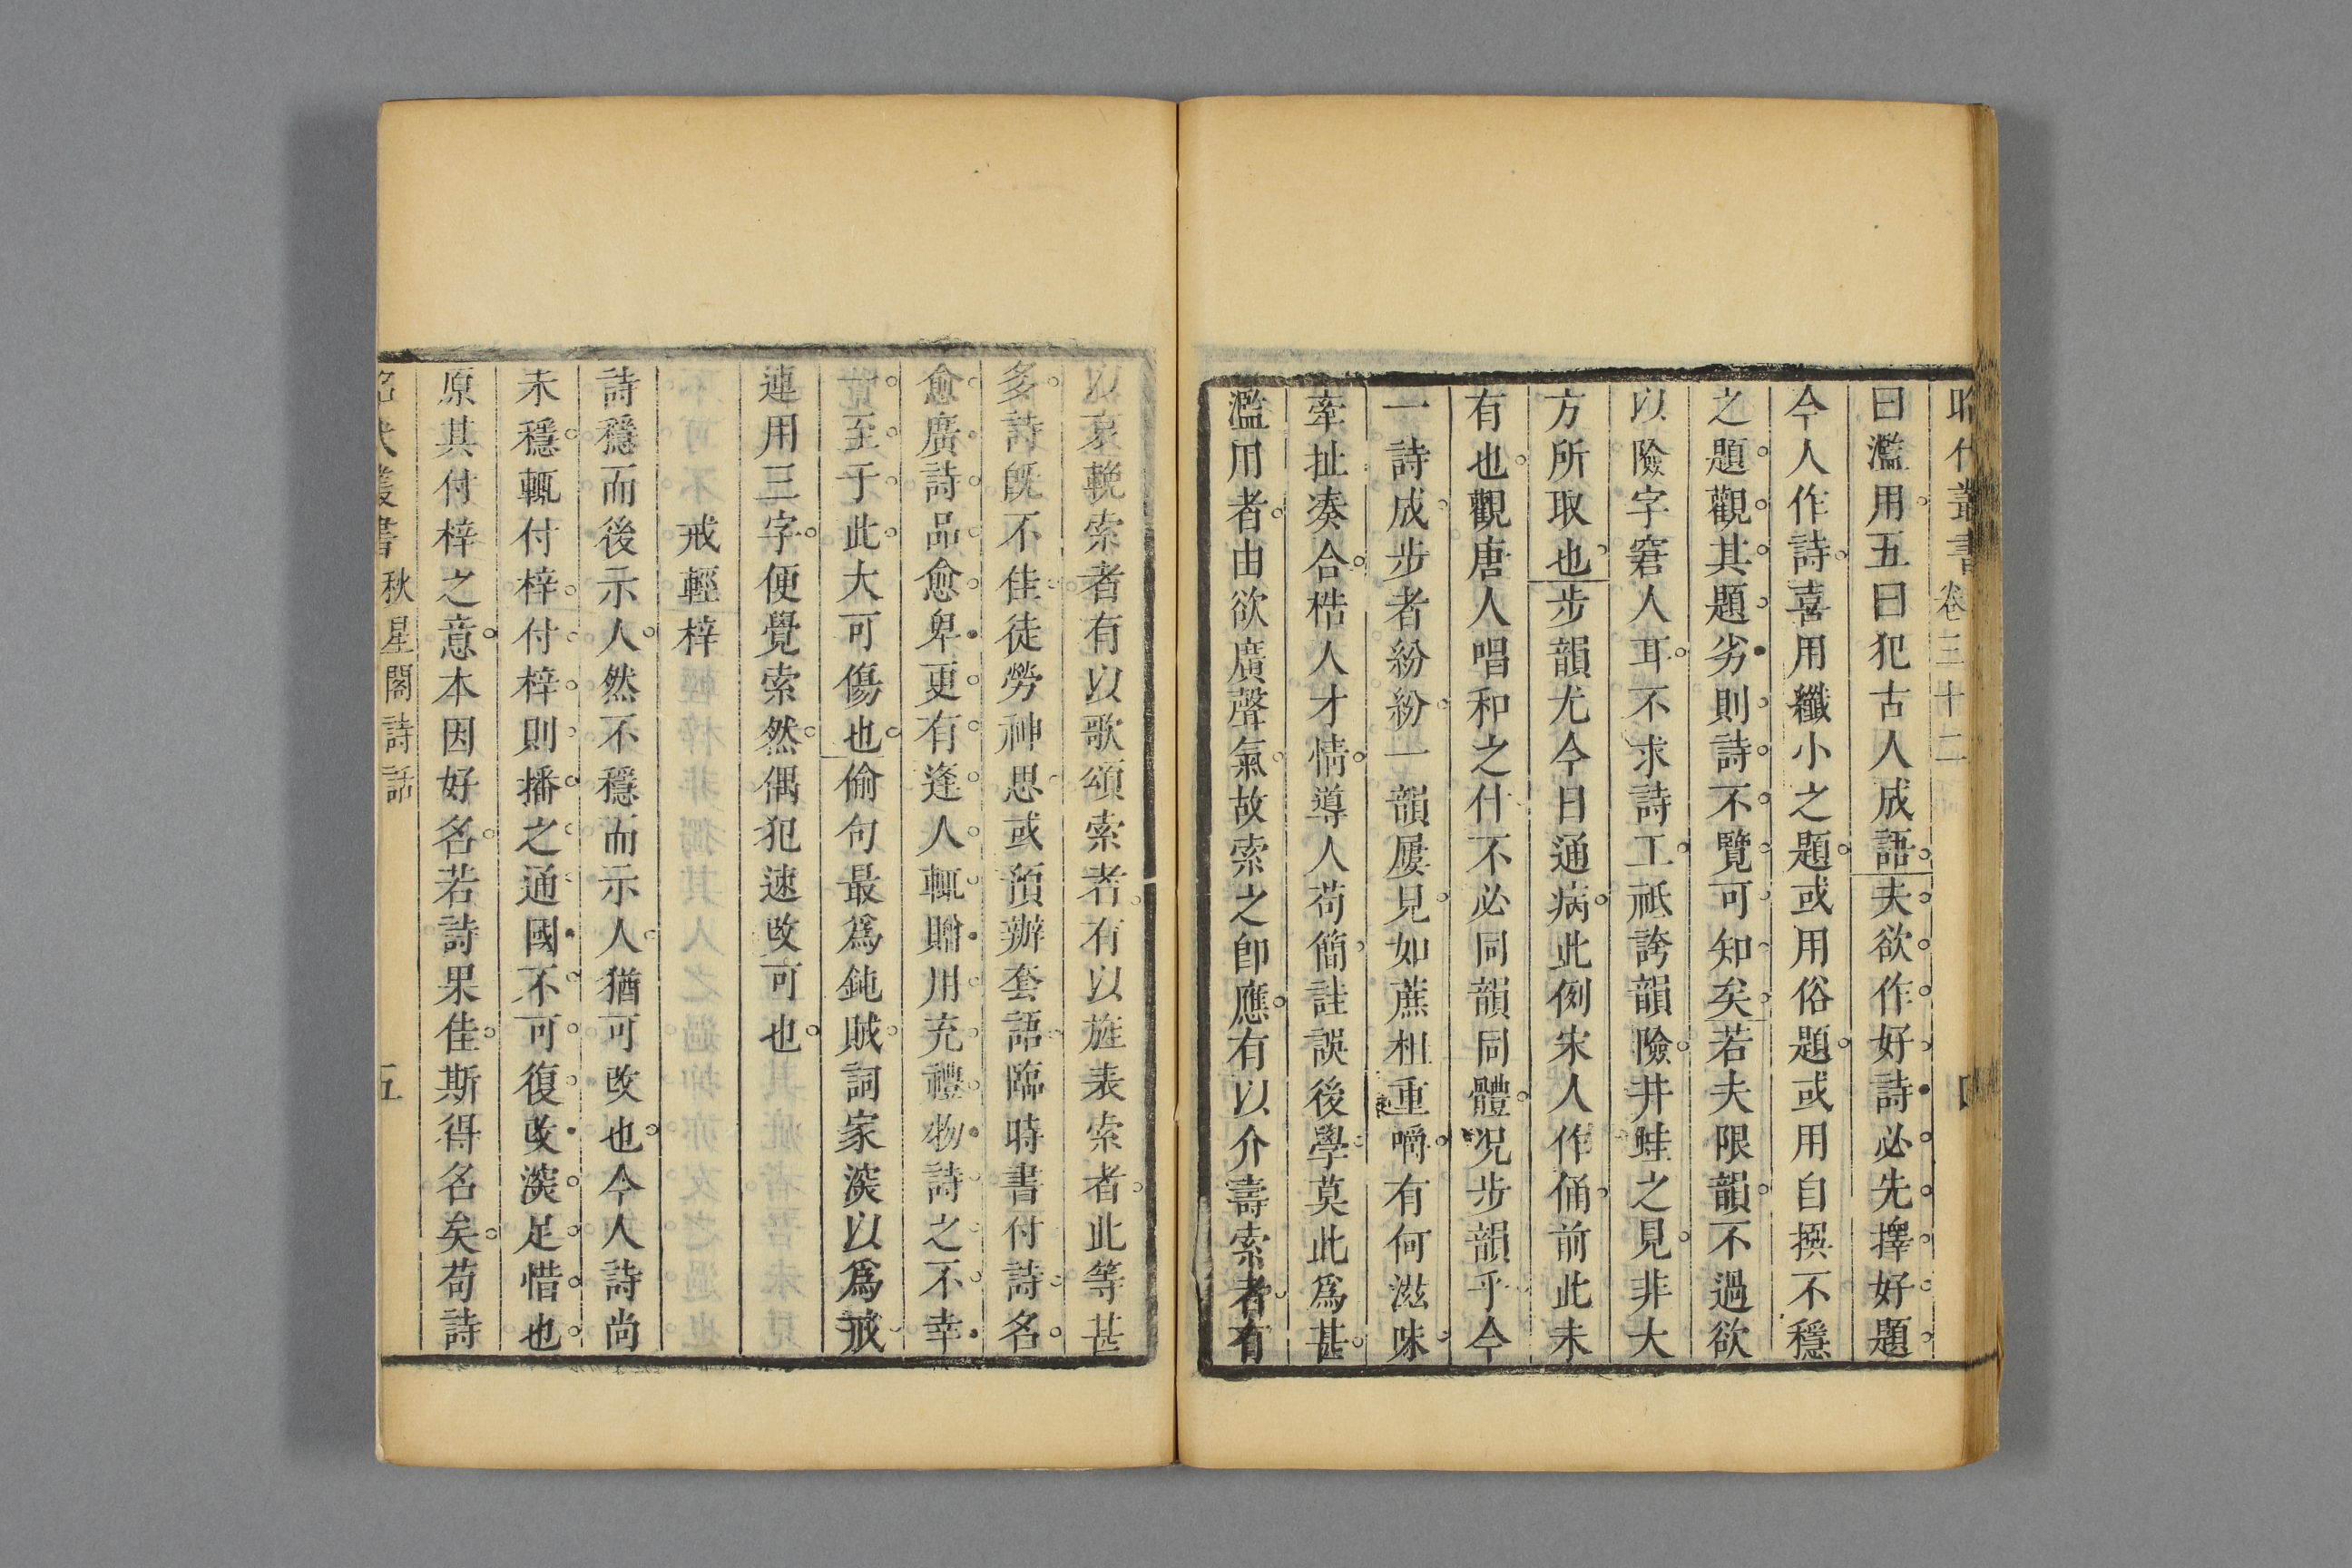 昭代叢書 卷三十二 四
曰濫用五曰犯古人成語夫欲作好詩必先擇好題
今人作詩喜用纖小之題或用俗題或用自撰不穩
之題觀其題劣則詩不覽可知矣若夫限韻不過欲
以險字窘人耳不求詩工祗誇韻險井蛙之見非大
方所取也步韻尤今日通病此例宋人作俑前此未
有也觀唐人唱和之什不必同韻同體况步韻乎今
一詩成步者紛紛一韻屢見如蔗相重嚼有何滋味
牽扯凑合梏人才情導人苟簡註誤後學莫此爲甚
濫用者由欲廣聲氣故索之卽應有以介壽索者有
以哀輓索者有以歌頌索者有以旌表索者此等甚
多詩旣不佳徒勞神思或預辦套語臨時書付詩名
愈廣詩品愈卑更有逢人輒贈用充禮物詩之不幸
一至于此大可傷也偷句最爲鈍賊詞家深以爲戒
連用三字便覺索然偶犯速改可也
戒輕梓
詩穩而後示人然不穩而示人猶可改也今人詩尚
未穩輒付梓付梓則播之通國不可復改深足惜也
原其付梓之意本因好名若詩果佳斯得名矣苟詩
昭代叢書 秋星閣詩話 五